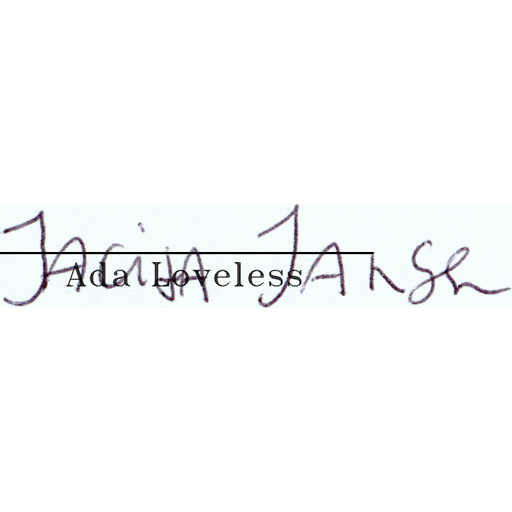 Jacija Jansen
Ada Loveless